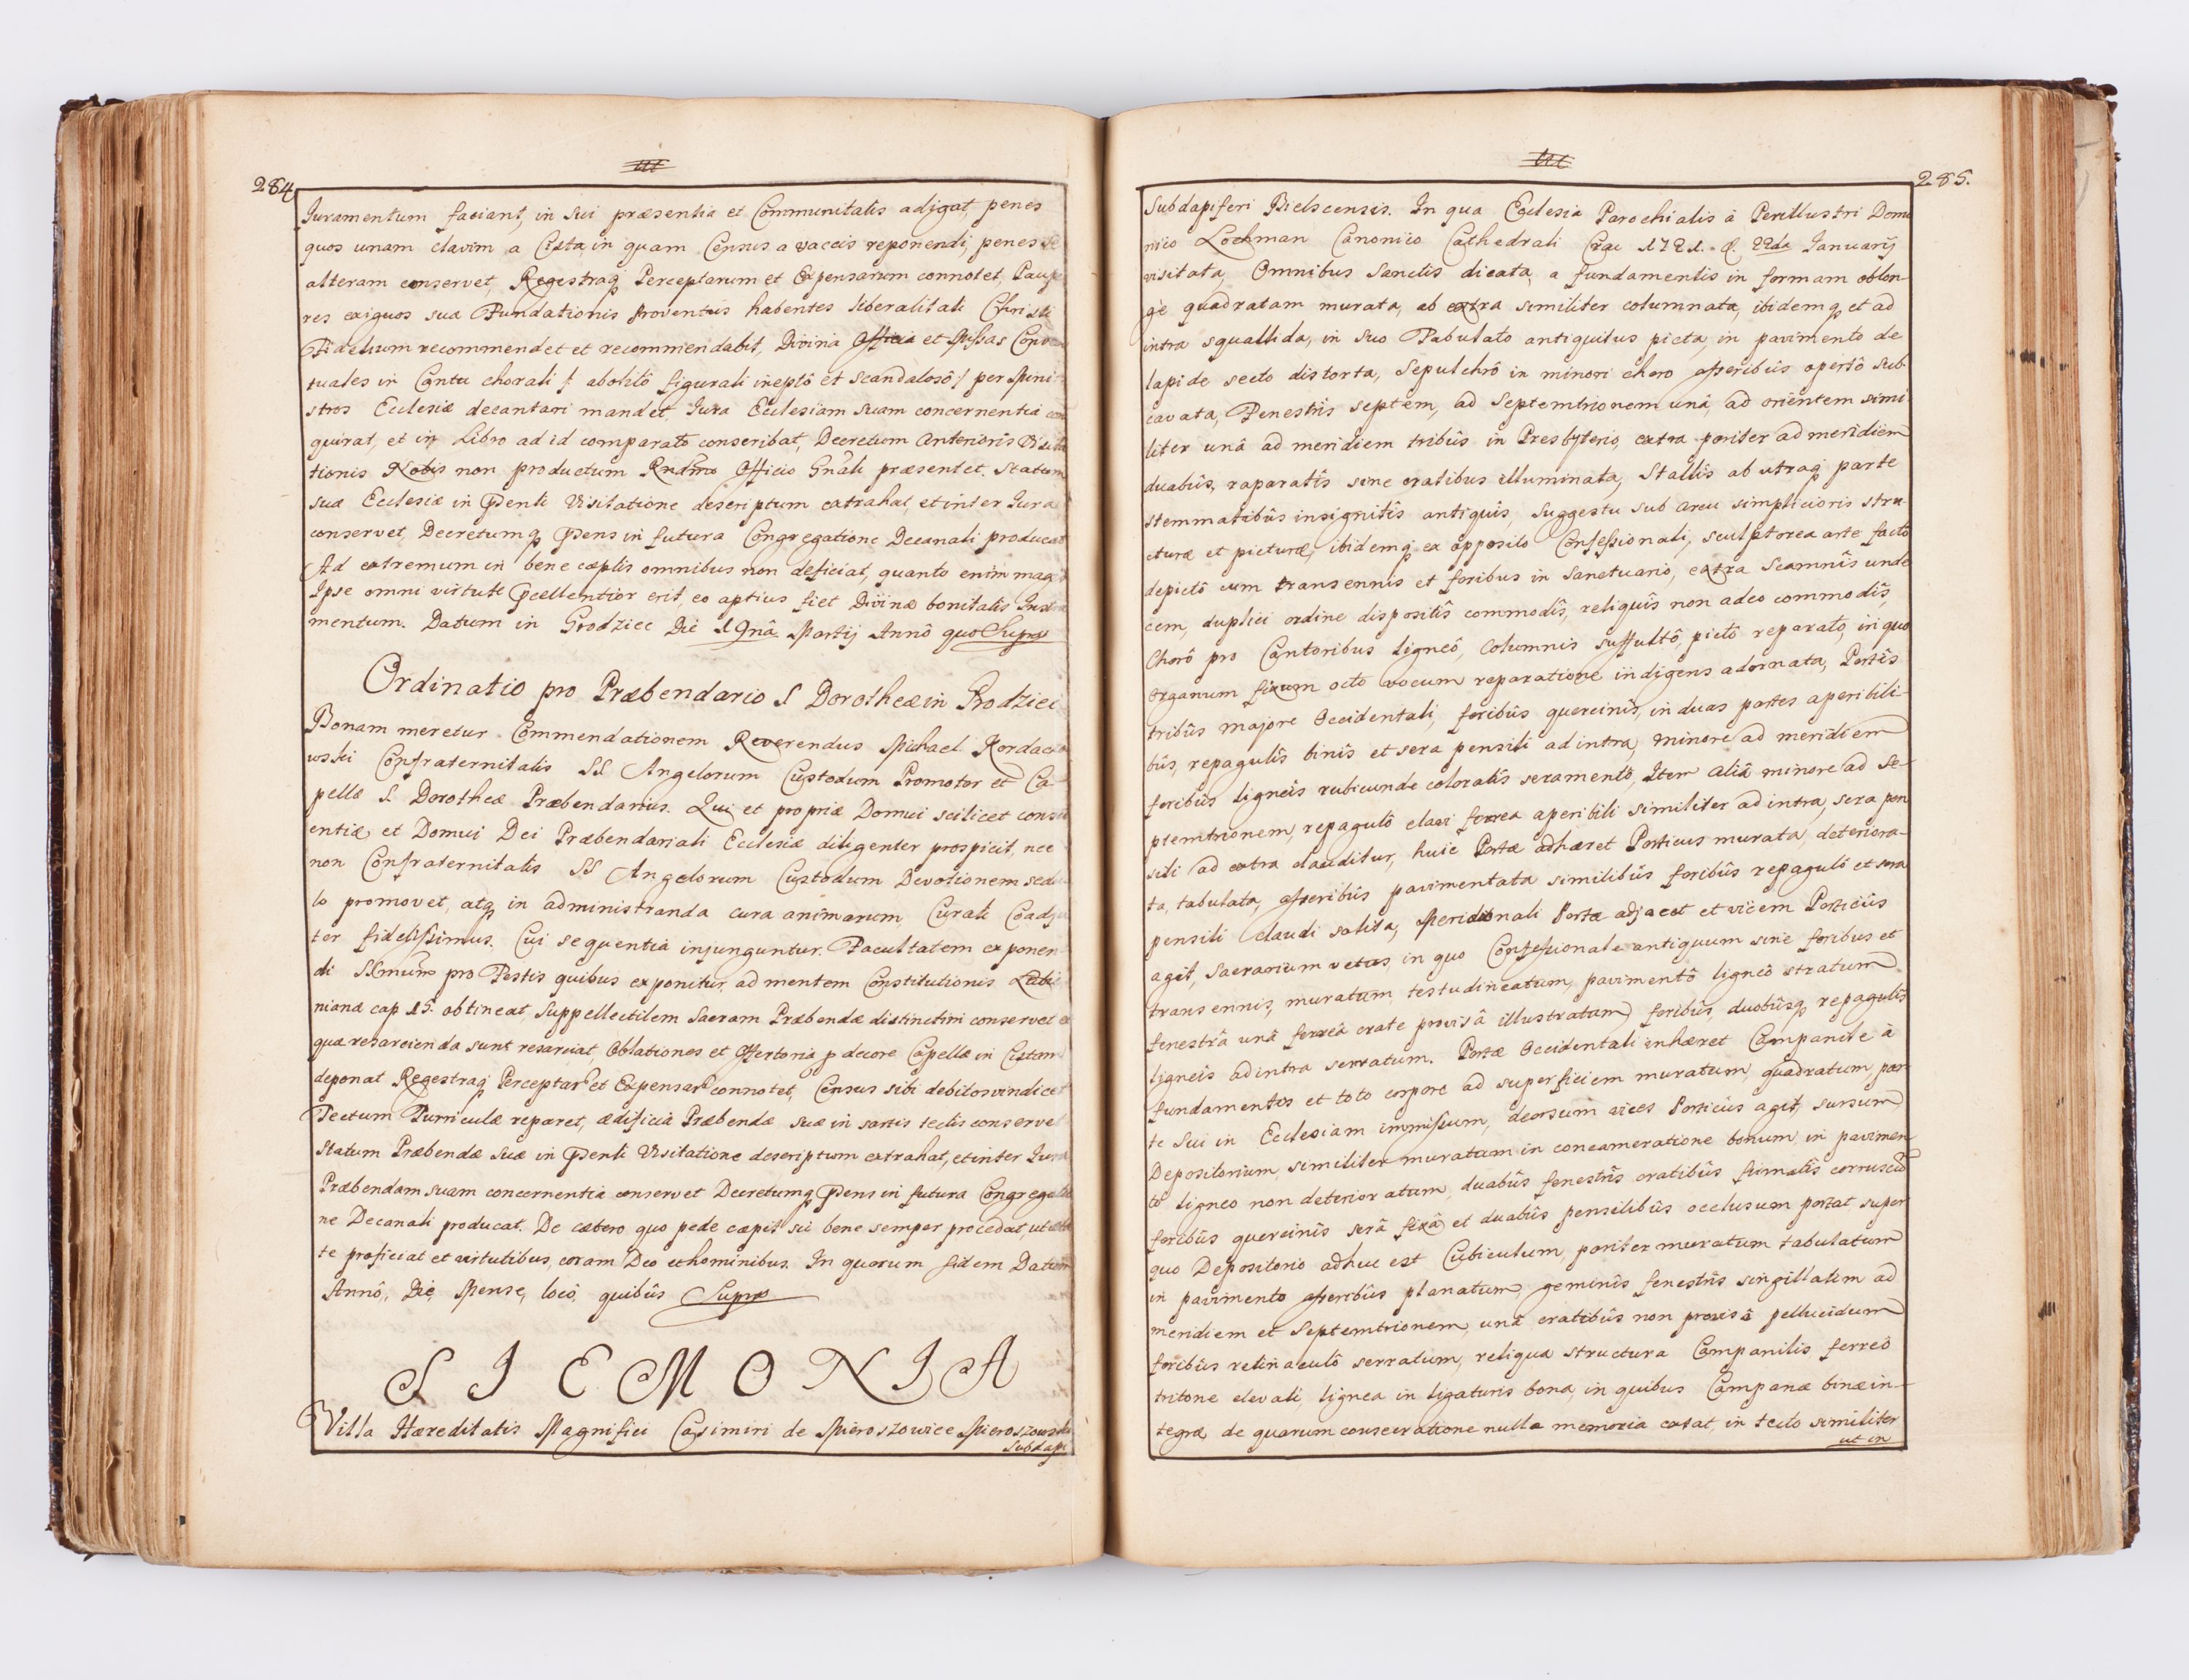 284
Juramentum faciant, in sui præsentia et Communitatis adigat, penes
quos unam clavim a Cista, in quam Census a vaccis reponendi, penes se
alteram conservet, Regestraq Perceptarum et Expensarum connotet, Paupe
res exiguos suæ Fundationis proventus habentes liberalitati Christi
Fidelium recommendet et recommendabit, Divina Officia et Missas Conven
tuales in Cantu chorali /: abolitô figurali ineptô et scandalosô :/ per Mini
stros Ecclesiæ decantari mandet, Jura Ecclesiam suam concernentia con
quirat, et in Libro ad id comparato conscribat, Decretum anterioris Visita
tionis Nobis non productum Rndmo Officio Gnali præsentet. Statum
suæ Ecclesiæ in Pnti Visitatione descriptum extrahat, et inter Jura
conservet, Decretumq Pns in futura Congregatione Decanali producat
Ad extremum in bene cæptis omnibus non deficiat, quanto enim magis
Ipse omni virtute Præcellentior erit, eo aptius fiet Divinæ bonitatis Instru
mentum. Datum in Grodziec Die 19nâ Martij Annô quo Supra
Ordinatio pro Præbendario S Dorotheæ in Grodziec
Bonam meretur Commendationem Reverendus Michael Kordaczo
wski Confraternitatis SS Angelorum Custodum Promotor et Ca
pellæ S. Dorotheæ Præbendarius. Qui et propriæ Domui scilicet consci
entiæ et Domui Dei Præbendariali Ecclesiæ diligenter prospicit, nec
non Confraternitatis SS Angelorum Custodum Devotionem sedu
lo promovet, atq in administranda cura animarum, Curati Coadju
tor fidelissimus. Cui sequentia injunguntur. Facultatem exponen
di SSmum pro Festis quibus exponitur, ad mentem Constitutionis Lubie
nianæ cap 15. obtineat, Suppellectilem Sacram Præbendæ distinctim conservet et
quæ resarcienda sunt resarciat, Oblationes et Offertoria p decore Capellæ in Cistam
deponat Regestraq Perceptar et Expensar connotet, Census sibi debitos vindicet
Tectum Turriculæ reparet, ædificia Præbendæ suæ in sartis tectis conservet
Statum Præbendæ Suæ in Pnti Visitatione descriptum extrahat, et inter Jura
Præbendam suam concernentia conservet Decretumq Pns in futura Congregatio
ne Decanali producat. De cætero quo pede cæpit sic bene semper procedat, ut æta
te proficiat et virtutibus, coram Deo et hominibus. In quorum fidem Datum
Annô, Die, Mense, locô, quibûs Supra
SIEMONIA
Villa Hæreditatis Magnifici Casimiri de Mieroszowice Mieroszowski
Subdapi
285.
Subdapiferi Bielscensis. In qua Ecclesia Parochialis à Perillustri Domi
nico Lochman Canonico Cathedrali Crac 1721. d. 22da Januarij
visitata, Omnibus Sanctis dicata, a fundamentis in formam oblon-
gè quadratam murata, ab extra similiter columnata, ibidemq et ad
intra squallida, in suo Tabulato antiquitus picta, in pavimento de
lapide secto distorta, Sepulchrô in minori choro asseribûs opertô sub-
cavata, Fenestris septem, ad Septemtrionem unâ, ad orientem simi
liter unâ ad meridiem tribûs in Presbyterio, extra pariter ad meridiem
duabûs, raparatîs sine cratibus illuminata, Stallîs ab utraq parte
stemmatibûs insignitîs antiquîs, Suggestu sub arcu simplicioris stru-
cturæ et picturæ, ibidemq ex opposito Confessionali, sculptorea arte facto
depictô cum transennis et foribus in Sanctuario, extra Scamnîs unde
cem, duplici ordine dispositîs commodîs, reliquîs non adeo commodîs,
Chorô pro Cantoribus ligneô, Columnis suffultô, pictô reparato, in quo
Organum fixum octo vocum reparatione indigens adornata, Portîs
tribûs majore Occidentali, foribûs quercinîs, in duas partes aperibili-
bûs, repagulîs binîs et sera pensili ad intra, minore ad meridiem
foribûs ligneîs rubicunde coloratîs seramentô, Item aliâ minore ad Se-
ptemtrionem, repagulô clavi ferrea aperibili similiter ad intra, sera pen
sili ad extra clauditur, huic Portæ adhæret Porticus murata, deteriora-
ta, tabulata, asseribûs pavimentata similibûs foribûs repagulô et sera
pensili claudi solita, Meridionali Portæ adjacet et vicem Porticûs
agit, Sacrarium vetus, in quo Confessionale antiquum sine foribus et
transennis, muratum, testudineatum, pavimentô ligneô stratum
fenestrâ unâ ferreâ crate provisâ illustratum, foribûs, duobûsq repagulîs
ligneîs ad intra serratum. Portæ Occidentali inhæret Campanile à
fundamentis et toto corpore ad superficiem muratum, quadratum, par
te Sui in Ecclesiam immissum, deorsum vices Porticûs agit, sursum
Depositorium, similiter muratum in concameratione bonum, in pavimen
to ligneo non deterioratum, duabûs fenestrîs cratibûs firmatîs corruscum
foribûs quercinîs serâ fixâ et duabûs pensilibûs occlusum portat, super
quo Depositorio adhuc est Cubiculum, pariter muratum tabulatum
in pavimento asseribûs planatum, geminîs fenestrîs singillatim ad
meridiem et Septemtrionem, unâ cratibûs non provisâ pellucidum
foribûs retinaculô serratum, reliqua structura Campanilis ferreô
tritone elevati, lignea in ligaturis bona, in quibus Campanæ binæ in-
tegræ de quarum consecratione nulla memoria extat, in tecto similiter
ut in